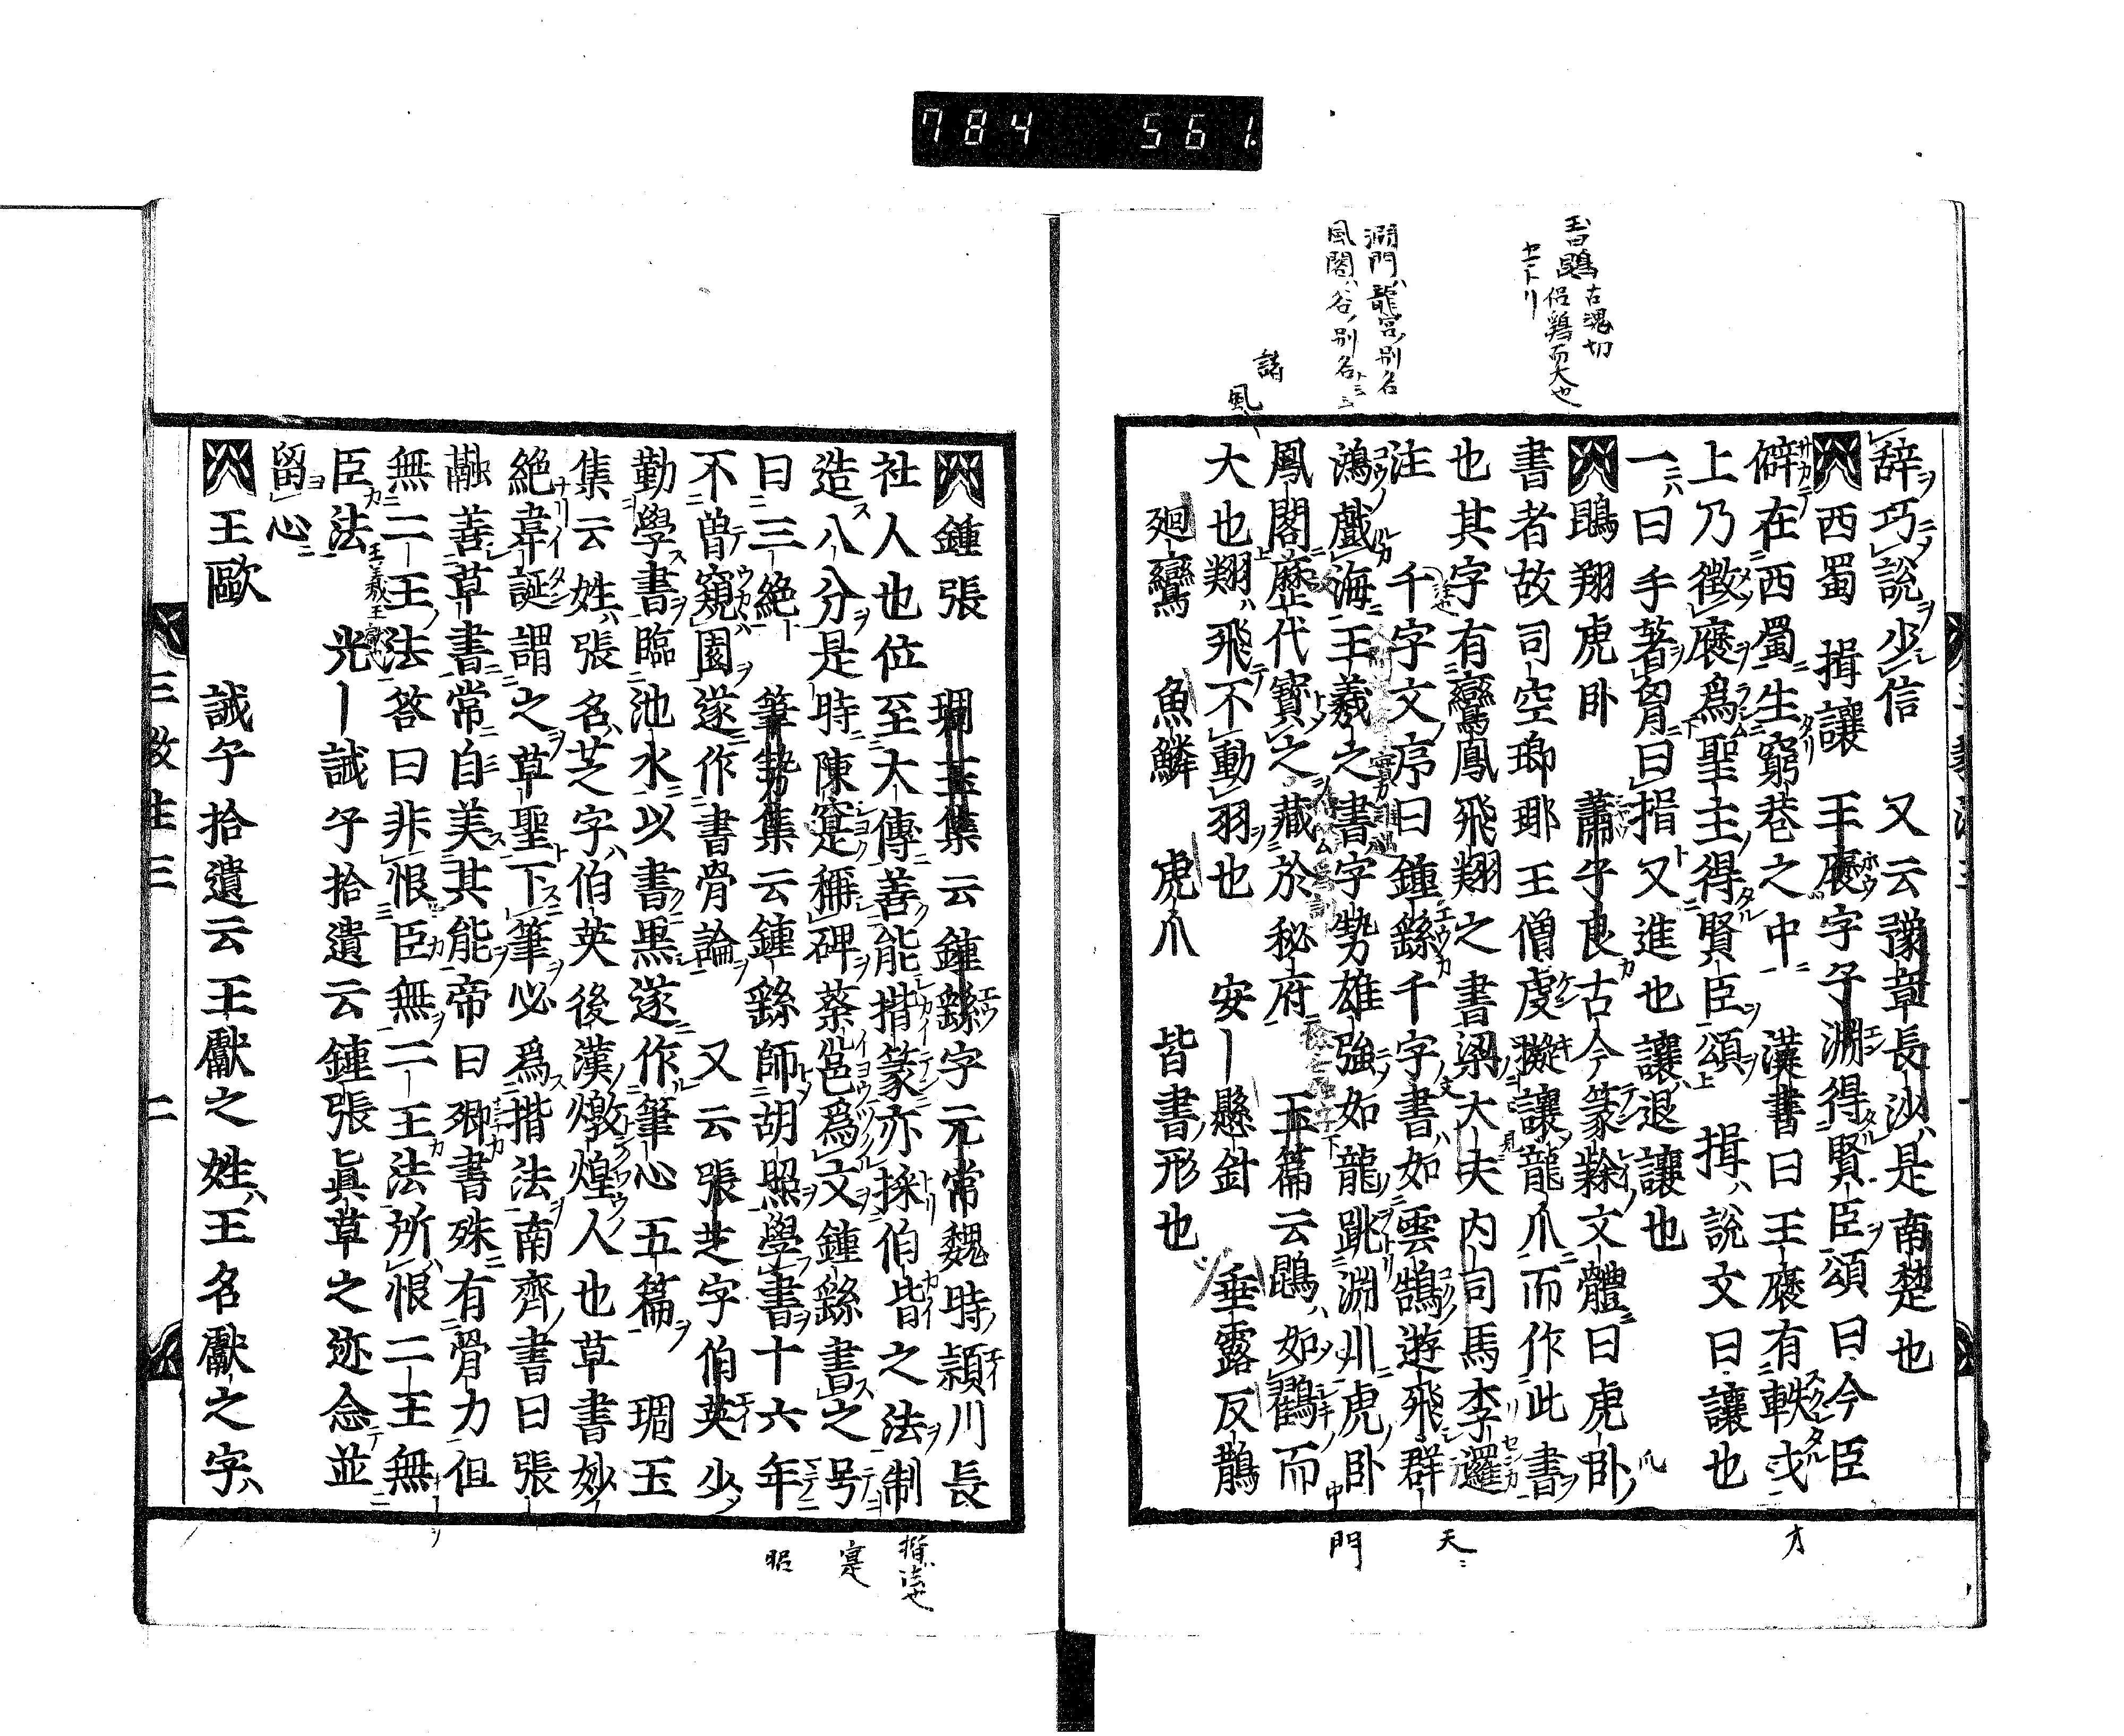 784 561.
辭巧說少信 又云豫章長沙是南楚也
西蜀 揖讓 王襃字子淵得賢臣頌曰今臣
僻在西蜀生窮巷之中 漢書曰王襃有軼戈
上乃徵襃爲聖主得賢臣頌 揖說文曰讓也
一曰手著胷曰揖又進也讓退讓也
鵾翔虎卧 蕭子良古今篆隸文體曰虎卧
書者故司空瑯耶王僧虔擬讓龍爪而作此書
也其字有鸞鳳飛翔之書梁大夫内司馬李邏
注千字文序曰鍾繇千字書如雲鵠遊飛群
鴻戲海王羲之書字勢雄強如龍跳淵川虎卧
鳳閣歷代寳之藏於秘府 玉篇云鵾如鸛而
大也翔飛不動羽也 安—懸針 垂露反鵲
廻鸞 魚鱗 虎爪 皆書形也
鍾張 琱玉集云鍾繇字元常魏時頴川長
社人也位至大傳善能揩篆亦採伯皆之法制
造八分是時陳寔稱碑蔡邕爲文鍾繇書之号
曰三絶 筆勢集云鍾繇師胡照學書十六年
不曽窺園遂作書骨論 又云張芝字伯英少
勤學書臨池水以書黒遂作筆心五篇 琱玉
集云姓張名芝字伯英後漢燉煌人也草書妙
絶韋誕謂之草聖下筆必爲揩法南齊書曰張
融善草書常自美其能帝曰卿書殊有骨力但
無二王法荅曰非恨臣無二王法所恨二王無
臣法 光—誡子拾遺云鍾張眞草之迹念並
留心
王歐 誡子拾遺云王獻之姓王名獻之字
三教 三 二
古魂切
侶鶏而大也
龍宮別名
風閣谷別名
風
門
天
才
寔
昭